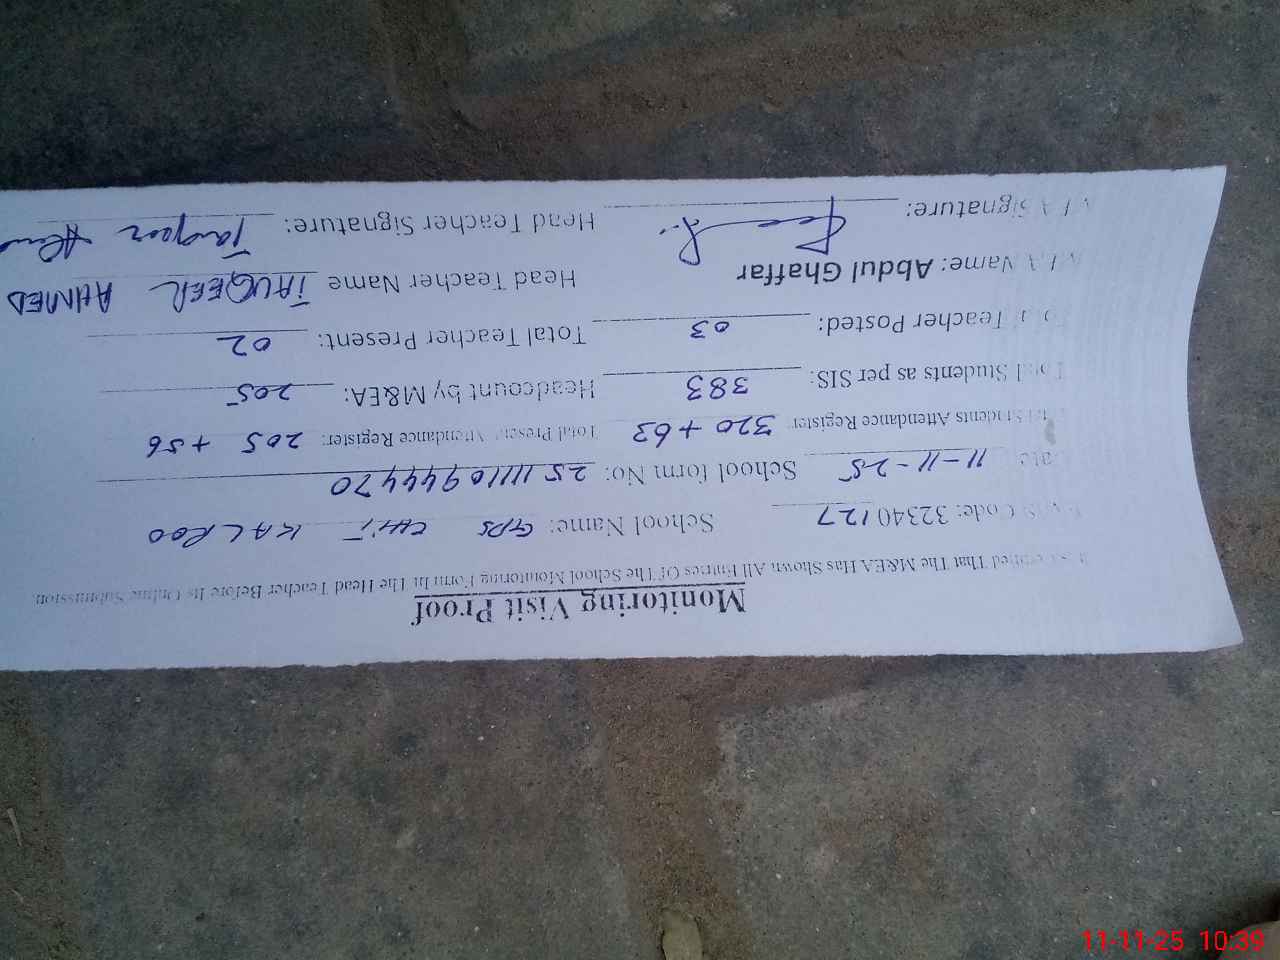 Monitoring Visit Proof
That The M&EA Has Shown All Entries Of The School Monitoring Form To The Head Teacher Before Its Online Submission
Code: 32340127 School Name: GPS CHIT KALROO
11-11-25 School form No: 25111110944470
Students Attendance Register 320 + 63 Total Present Attendance Register: 205 + 56
Total Students as per SIS: 383 Headcount by M&EA: 205
Teacher Posted: 03 Total Teacher Present: 02
Name: Abdul Ghaffar Head Teacher Name TAUQEER AHMED
Signature: Head Teacher Signature: Tauqeer
11-11-25 10:39